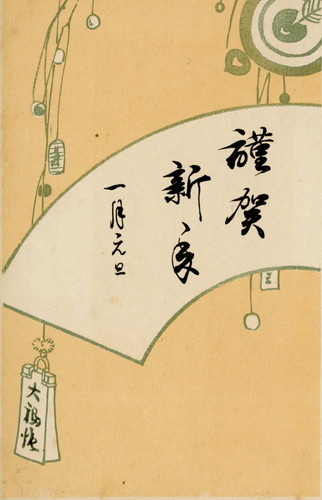 謹賀
新年
一月元旦
大福帳